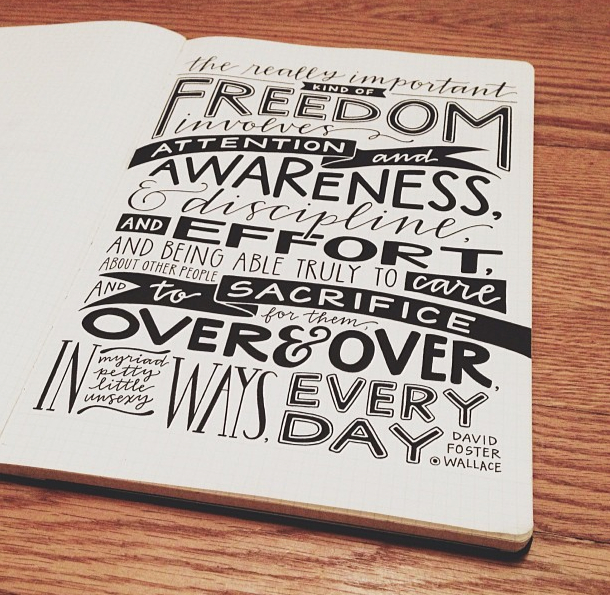 the really important
KIND OF
FREEDOM
involves
ATTENTION and
AWARENESS,
& discipline,
AND EFFORT,
AND BEING ABLE TRULY TO care
ABOUT OTHER PEOPLE
AND to SACRIFICE
for them,
OVER & OVER,
IN myriad petty little unsexy WAYS,
EVERY DAY
DAVID
FOSTER
WALLACE